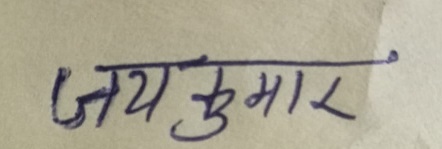 जय कुमार